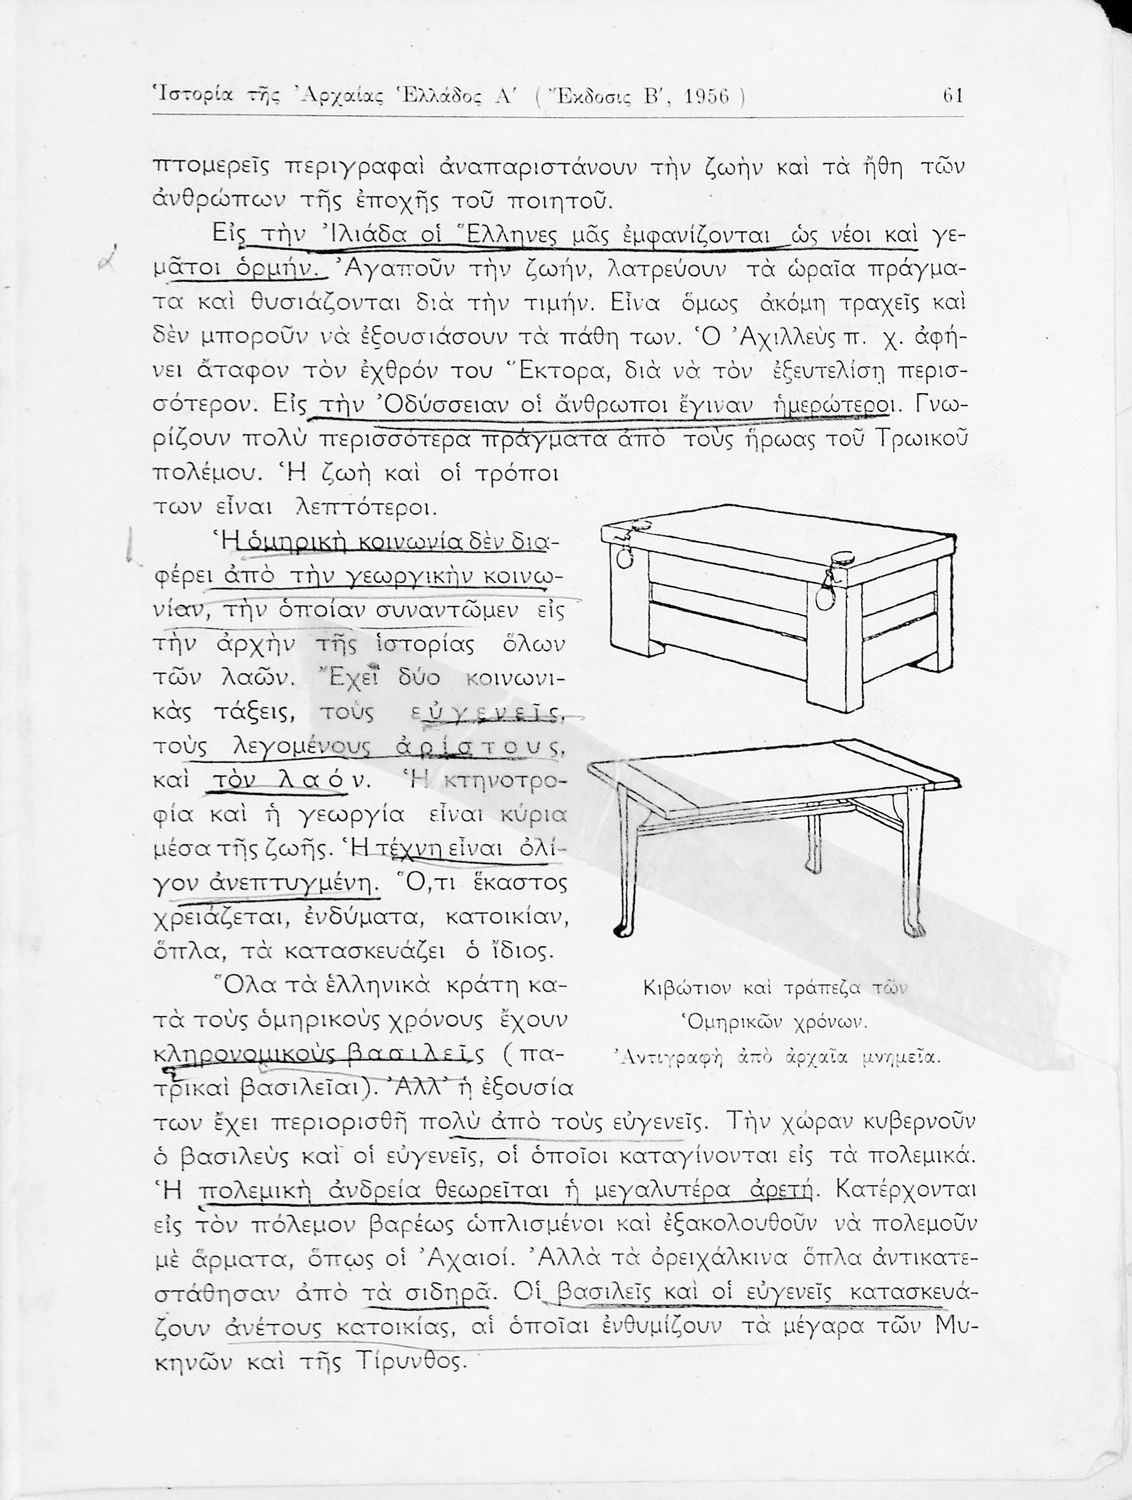 Ἱστορία τῆς Ἀρχαίας Ἑλλάδος Α′ ( Ἔκδοσις Β′, 1956 ) 61
πτομερεῖς περιγραφαὶ ἀναπαριστάνουν τὴν ζωὴν καὶ τὰ ἤθη τῶν
ἀνθρώπων τῆς ἐποχῆς τοῦ ποιητοῦ.
Εἰς τὴν Ἰλιάδα οἱ Ἕλληνες μᾶς ἐμφανίζονται ὡς νέοι καὶ γε-
μᾶτοι ὁρμήν. Ἀγαποῦν τὴν ζωήν, λατρεύουν τὰ ὡραῖα πράγμα-
τα καὶ θυσιάζονται διὰ τὴν τιμήν. Εἶνα ὅμως ἀκόμη τραχεῖς καὶ
δὲν μποροῦν νὰ ἐξουσιάσουν τὰ πάθη των. Ὁ Ἀχιλλεὺς π. χ. ἀφή-
νει ἄταφον τὸν ἐχθρόν του Ἕκτορα, διὰ νὰ τὸν ἐξευτελίσῃ περισ-
σότερον. Εἰς τὴν Ὀδύσσειαν οἱ ἄνθρωποι ἔγιναν ἡμερώτεροι. Γνω-
ρίζουν πολὺ περισσότερα πράγματα ἀπὸ τοὺς ἥρωας τοῦ Τρωικοῦ
πολέμου. Ἡ ζωὴ καὶ οἱ τρόποι
των εἶναι λεπτότεροι.
Ἡ ὁμηρικὴ κοινωνία δὲν δια-
φέρει ἀπὸ τὴν γεωργικὴν κοινω-
νίαν, τὴν ὁποίαν συναντῶμεν εἰς
τὴν ἀρχὴν τῆς ἱστορίας ὅλων
τῶν λαῶν. Ἔχει δύο κοινωνι-
κὰς τάξεις, τοὺς εὐγενεῖς,
τοὺς λεγομένους ἀρίστους,
καὶ τὸν λαόν. Ἡ κτηνοτρο-
φία καὶ ἡ γεωργία εἶναι κύρια
μέσα τῆς ζωῆς. Ἡ τέχνη εἶναι ὀλί-
γον ἀνεπτυγμένη. Ὅ,τι ἕκαστος
χρειάζεται, ἐνδύματα, κατοικίαν,
ὅπλα, τὰ κατασκευάζει ὁ ἴδιος.
Ὅλα τὰ ἑλληνικὰ κράτη κα-
τὰ τοὺς ὁμηρικοὺς χρόνους ἔχουν
κληρονομικοὺς βασιλεῖς (πα-
τρικαὶ βασιλεῖαι). Ἀλλ’ ἡ ἐξουσία
των ἔχει περιορισθῆ πολὺ ἀπὸ τοὺς εὐγενεῖς. Τὴν χώραν κυβερνοῦν
ὁ βασιλεὺς καὶ οἱ εὐγενεῖς, οἱ ὁποῖοι καταγίνονται εἰς τὰ πολεμικά.
Ἡ πολεμικὴ ἀνδρεία θεωρεῖται ἡ μεγαλυτέρα ἀρετή. Κατέρχονται
εἰς τὸν πόλεμον βαρέως ὡπλισμένοι καὶ ἐξακολουθοῦν νὰ πολεμοῦν
μὲ ἅρματα, ὅπως οἱ Ἀχαιοί. Ἀλλὰ τὰ ὀρειχάλκινα ὅπλα ἀντικατε-
στάθησαν ἀπὸ τὰ σιδηρᾶ. Οἱ βασιλεῖς καὶ οἱ εὐγενεῖς κατασκευά-
ζουν ἀνέτους κατοικίας, αἱ ὁποῖαι ἐνθυμίζουν τὰ μέγαρα τῶν Μυ-
κηνῶν καὶ τῆς Τίρυνθος.
Κιβώτιον καὶ τράπεζα τῶν
Ὁμηρικῶν χρόνων.
Ἀντιγραφὴ ἀπὸ ἀρχαῖα μνημεῖα.